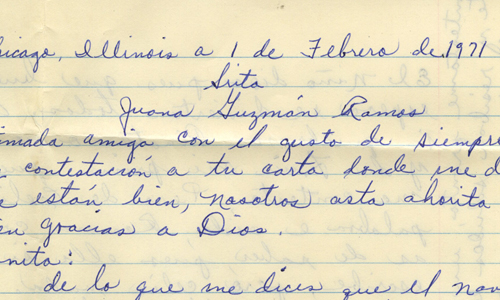 hicago, Illinois a 1 de Febrero de 1971
Srita
Juana Guzmán Ramos
imada amiga con el gusto de siempre
contestación a tu carta donde me d
e están bien, nosotros asta ahorita
en gracias a Dios.
nita:
de lo que me dices que el nov